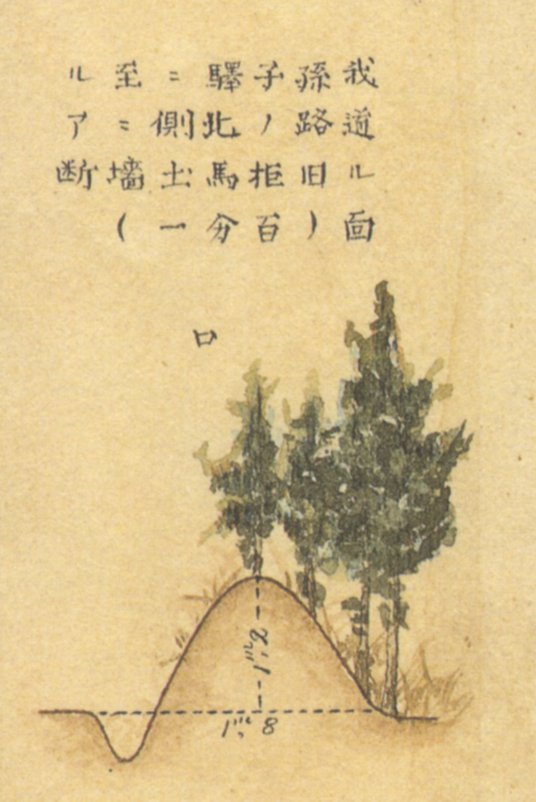 我孫子驛ニ至ル
道路ノ北側ニア
ル旧拒馬土墻断
面(百分一)
ロ
1ᵐ,2
1ᵐ,8